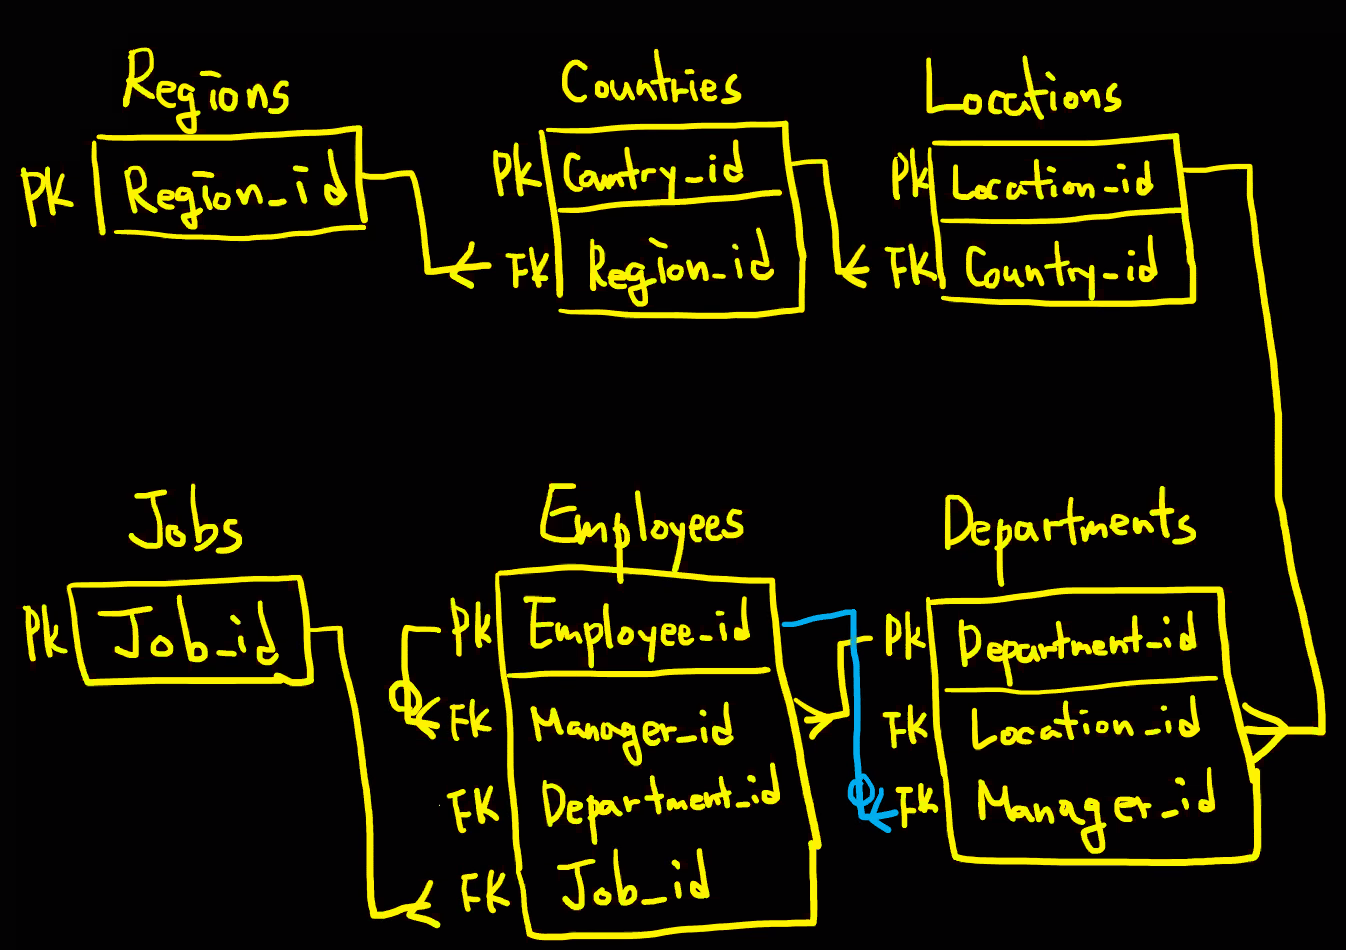 Regions
PK Region_id
Countries
PK Country_id
FK Region_id
Locations
PK Location_id
FK Country_id
Jobs
PK Job_id
Employees
PK Employee_id
FK Manager_id
FK Department_id
FK Job_id
Departments
PK Department_id
FK Location_id
FK Manager_id